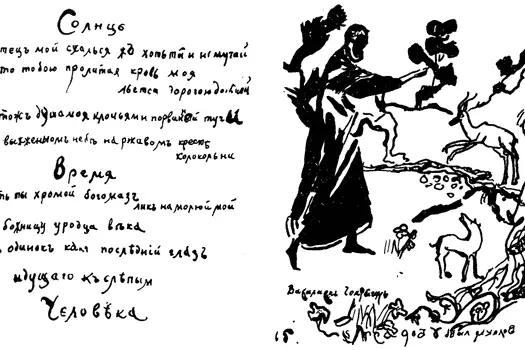 Солнце
тецъ мой сжалься хоть ты и не мучай
то тобою пролитая кровь моя
льется дорогою дольней
тожъ душа моя клочьями порванной тучи
выжженномъ небѣ на ржавомъ крестѣ
колокольни
Время
ть ты хромой богомазъ
ликъ намалюй мой
божницу уродца вѣка
одинокъ какъ послѣднiй глазъ
идущаго къ слѣпымъ
Человѣка